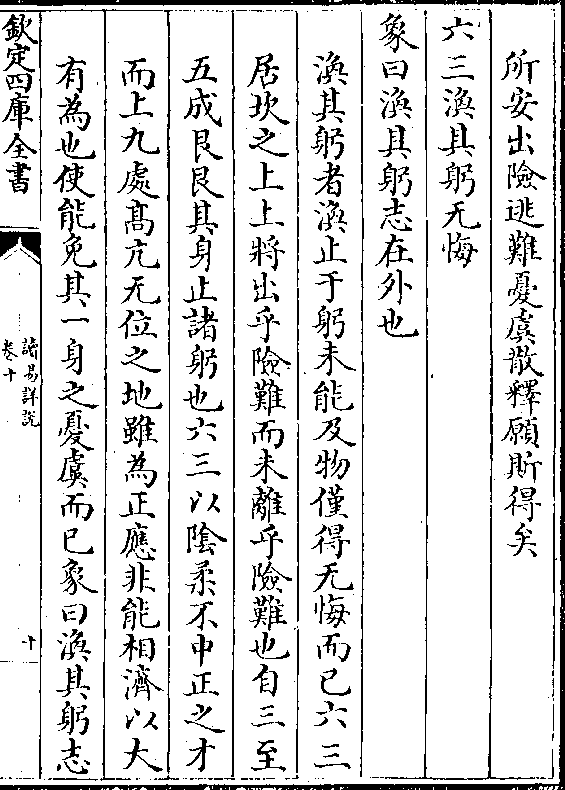 所安出險逃難憂虞散釋願斯得矣
六三渙其躬无悔
象曰渙其躬志在外也
渙其躬者渙止于躬未能及物僅得无悔而已六三
居坎之上上將出乎險難而未離乎險難也自三至
五成艮艮其身止諸躬也六三以陰柔不中正之才
而上九處髙亢无位之地雖為正應非能相濟以大
有為也使能免其一身之憂虞而已象曰渙其躬志
欽定四庫全書
讀易詳說
卷十
十